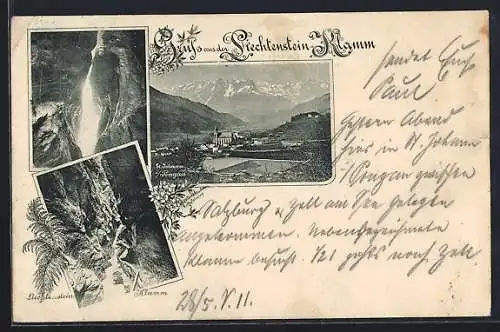 Gruss aus der Liechtenstein-Klamm
sendet Euch
Paul
Gestern Abend
hier in St Johann
i/Pongau zwischen
Salzburg & Zell am See gelegen
angekommen. Nebenbezeichnete
Klamm besucht. Jetzt gehts nach Zell
28/5. V. 11.
St. Johann im
Pongau
Liechtenstein
Klamm